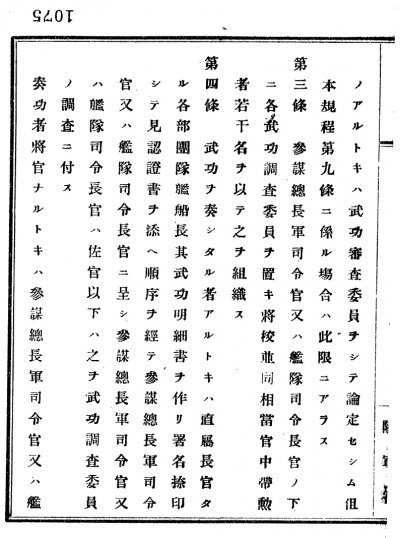 1075
ノアルトキハ武功審査委員ヲシテ論定セシム但
本規程第九條ニ係ル塲合ハ此限ニアラス
第三條　參謀總長軍司令官又ハ艦隊司令長官ノ下
ニ各武功調査委員ヲ置キ將校並同相當官中帶勳
者若干名ヲ以テ之ヲ組織ス
第四條　武功ヲ奏シタル者アルトキハ直屬長官タ
ル各部團隊艦船長其武功明細書ヲ作リ署名捺印
シテ見認證書ヲ添ヘ順序ヲ經テ參謀總長軍司令
官又ハ艦隊司令長官ニ呈シ參謀總長軍司令官又
ハ艦隊司令長官ハ佐官以下ハ之ヲ武功調査委員
ノ調査ニ付ス
奏功者將官ナルトキハ參謀總長軍司令官又ハ艦